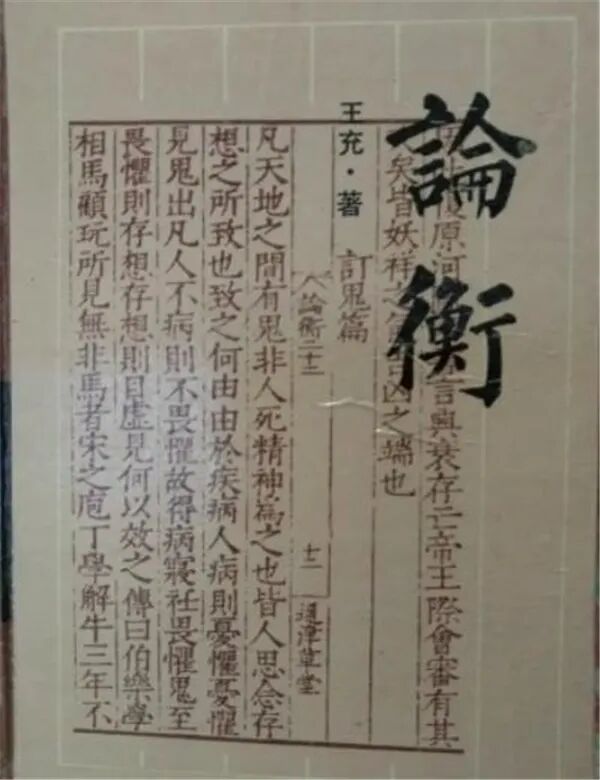 論衡
王充·著
復原河言興衰存亡帝王際會審有其
矣皆妖祥之凶之端也
訂鬼篇
論衡二十二 十二 通津草堂
凡天地之間有鬼非人死精神爲之也皆人思念存
想之所致也致之何由由於疾病人病則憂懼憂懼
見鬼出凡人不病則不畏懼故得病寢衽畏懼鬼至
畏懼則存想存想則目虛見何以效之傳曰伯樂學
相馬顧玩所見無非馬者宋之庖丁學解牛三年不